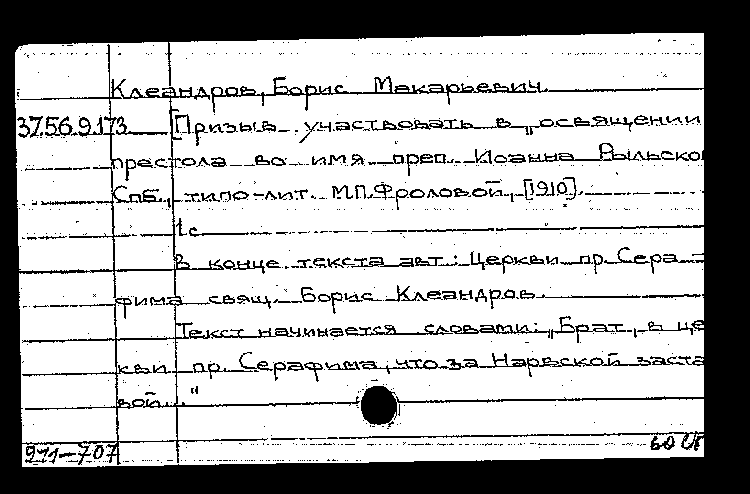 Клеандров, Борис Макарьевич.
37.56.9.173 [Призыв участвовать в „освящении
престола во имя преп. Иоанна Рыльско
Спб., типо-лит. М.П.Фроловой, [1910].
1 с
В конце текста авт.: Церкви пр. Сера-
фима свящ. Борис Клеандров.
Текст начинается словами: „Брат, в це
кви пр. Серафима, что за Нарвской заста
вой..."
911-707